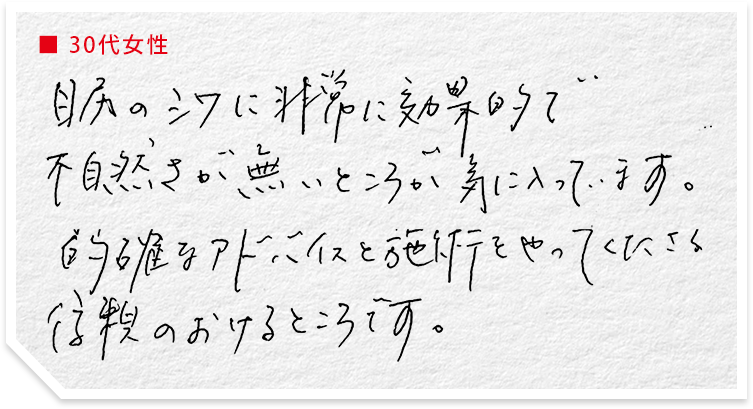 ■ 30代女性
目尻のシワに非常に効果的で
不自然さが無いところが気に入っています。
的確なアドバイスと施術をやってくださる
信頼のおけるところです。